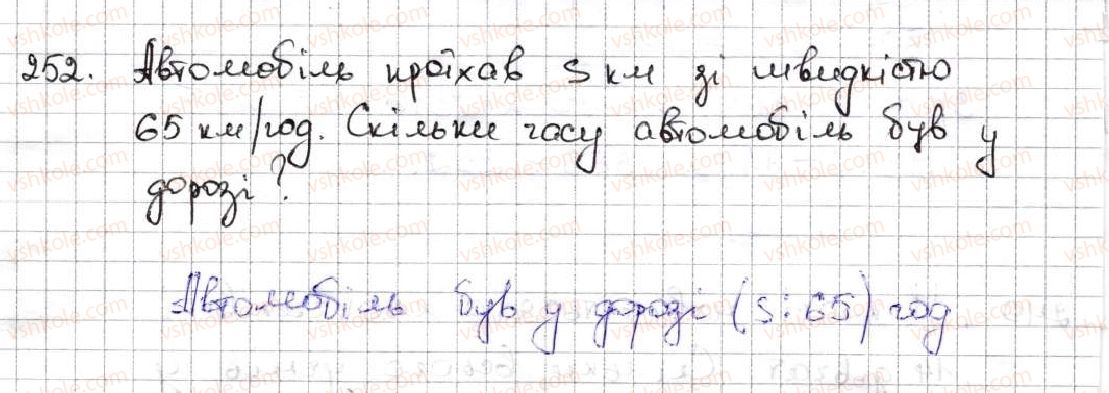 252. Автомобіль проїхав s км зі швидкістю
65 км/год. Скільки часу автомобіль був у
дорозі?
Автомобіль був у дорозі (s : 65) год